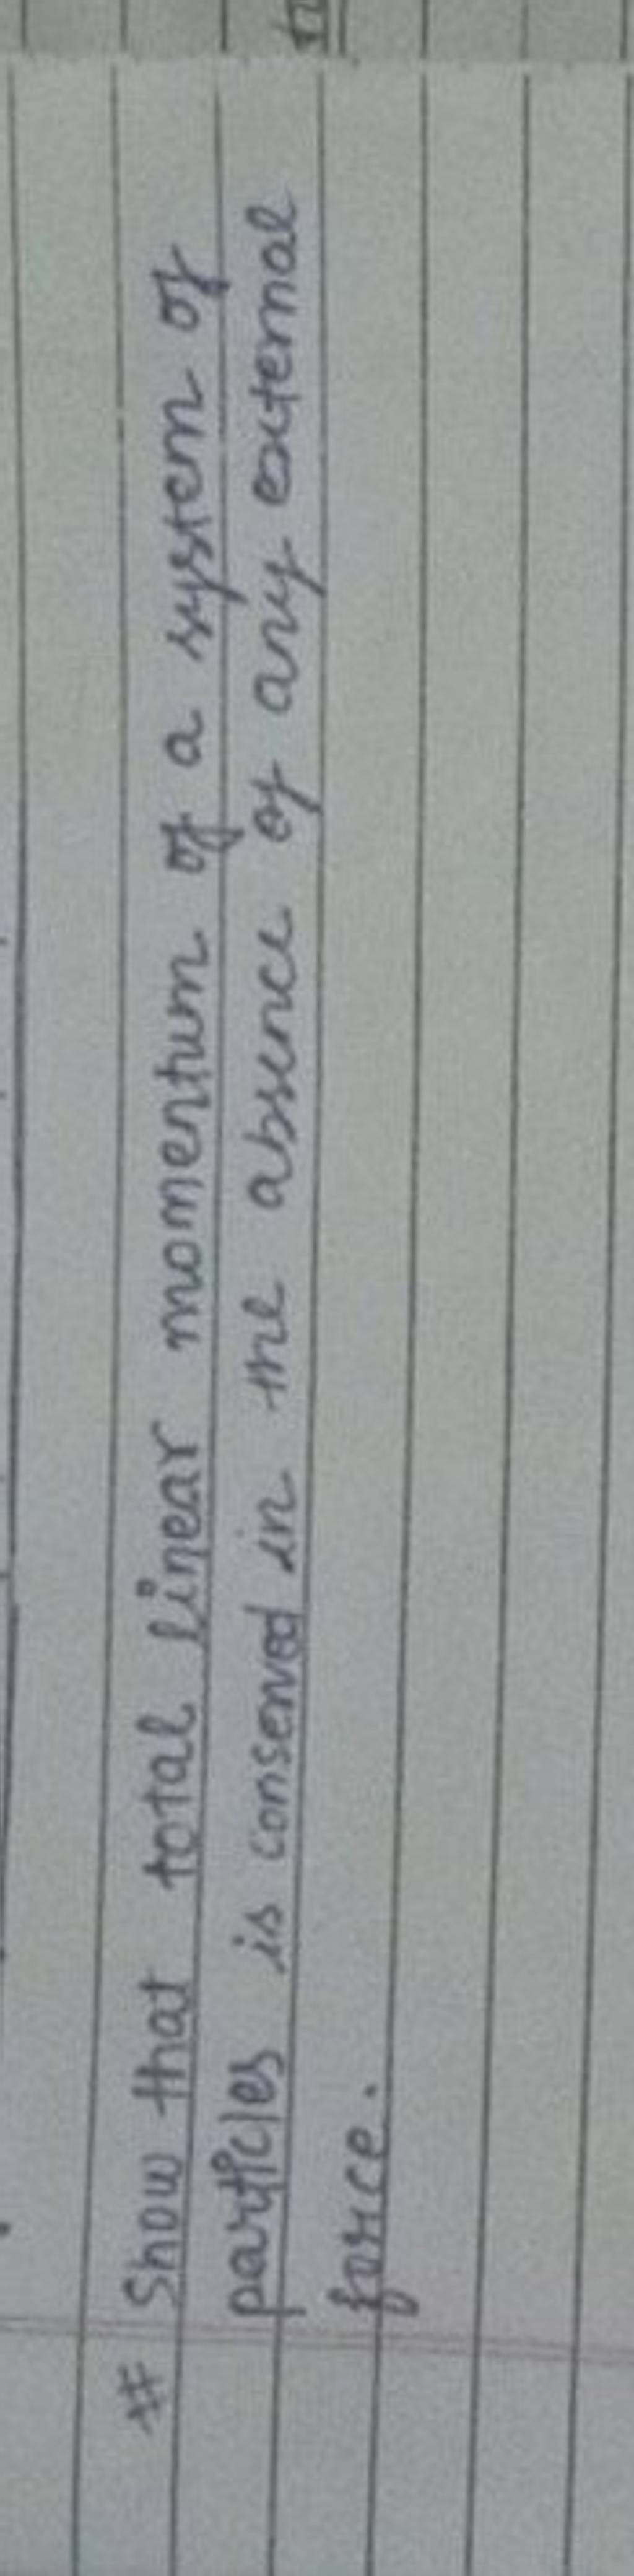 # Show that total linear momentum of a system of
particles is conserved in the absence of any external
force.